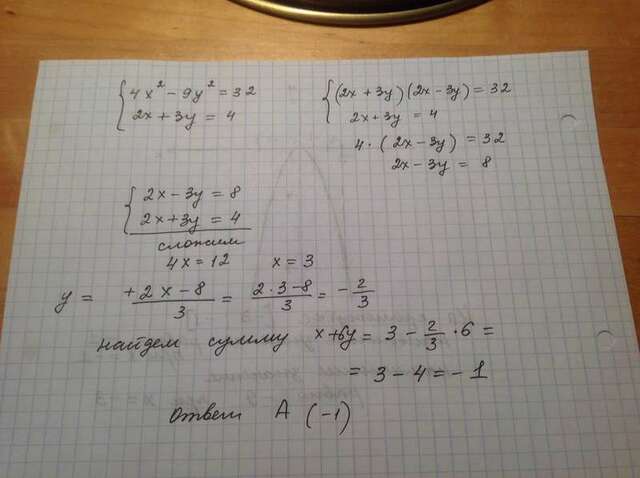 { 4x² - 9y² = 32
2x + 3y = 4
{ (2x + 3y)(2x - 3y) = 32
2x + 3y = 4
4 · (2x - 3y) = 32
2x - 3y = 8
{ 2x - 3y = 8
2x + 3y = 4
сложим
4x = 12 x = 3
y = +2x - 8/3 = 2·3-8/3 = -2/3
найдем сумму x+6y = 3 - 2/3 · 6 =
= 3 - 4 = -1
ответ A (-1)